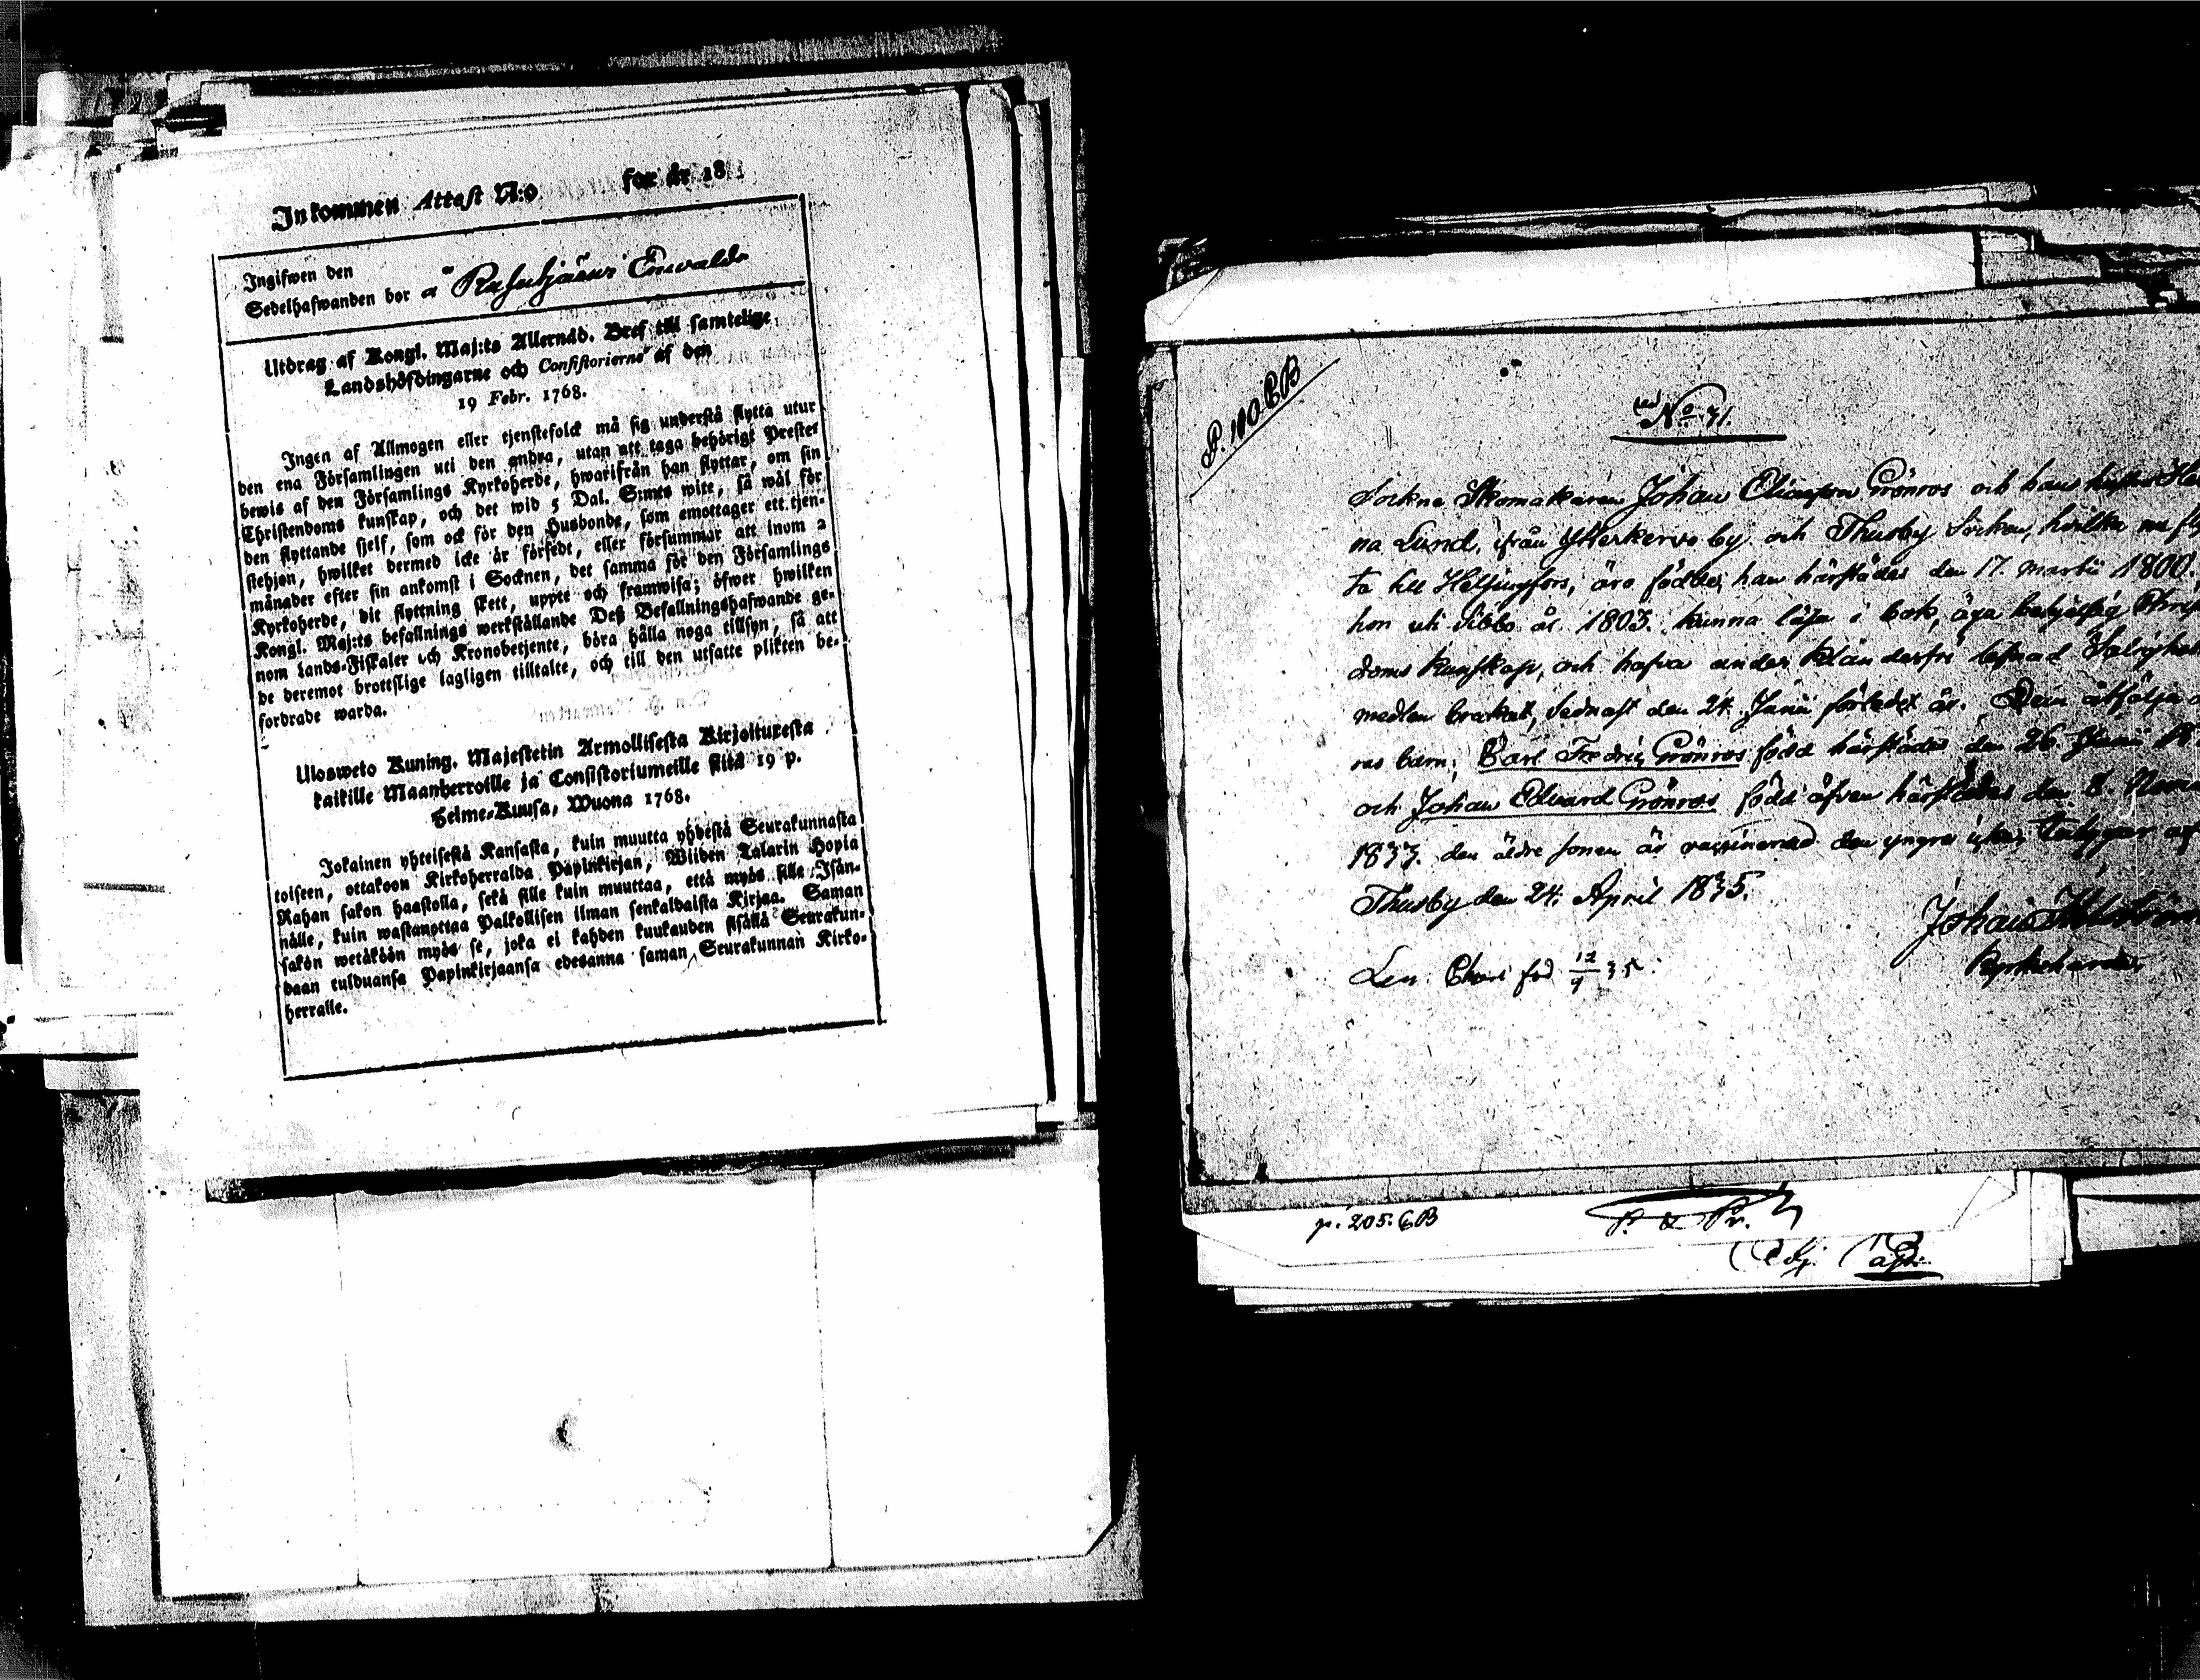 Inkommen Attest N:o för år 18
Ingifwen den
Sedelhafwanden bor å
Utdrag af Kongl. Maj:ts Allernåd. Bref till samtelige
Landshöfdingarne och Consistorierne af den
19 Febr. 1768.
Ingen af Allmogen eller tjenstefolck må sig understå flytta utur
den ena Församlingen uti den andra, utan att taga behörigt Prester
bewis af den Församlings Kyrkoherde, hwarifrån han flyttar, om sin
Christendoms kunskap, och det wid 5 Dal. S:mts wite, så wäl för
den flyttande sjelf, som ock för den Husbonde, som emottager ett tjen-
stehjon, hwilket dermed icke är försedt, eller försummar att inom 2
månader efter sin ankomst i Socknen, det samma för den Församlings
Kyrkoherde, dit flyttning skett, uppte och framwisa; öfwer hwilken
Kongl. Maj:ts befallnings werkställande Deß Befallningshafwande ge-
nom Lands-Fiskaler och Kronobetjente, böra hålla noga tillsyn, så att
de deremot brottslige lagligen tilltalte, och till den utsatte plikten be-
fordrade warda.
Ulosweto Kuning. Majestetin Armollisesta Kirjoituxesta
kaikille Maanherroille ja Consistoriumeille siitä 19 p.
Helme-Kuusa, Wuona 1768.
Jokainen yhteisestä Kansasta, kuin muutta yhdestä Seurakunnasta
toiseen, ottakoon Kirkoherralda Papinkirjan, Wiiden Talarin Hopia
Rahan sakon haastolla, sekä sille kuin muuttaa, että myös sille Isän-
nälle, kuin wastanottaa Palkollisen ilman senkaldaista Kirjaa. Saman
sakon wetäköön myös se, joka ei kahden kuukauden sisällä Seurakun-
daan tulduansa Papinkirjaansa edesanna saman Seurakunnan Kirko-
herralle.
P. 110 CB
No 31.
Sockne Skomakaren Johan Grönros och hans
na Lund, ifrån Ytterkervo by och Thusby Socken, hvilka nu
ta till Helsingfors, äro födde, han härstädes den 17. martii 1800.
hon uti Sibbo år 1803. kunna läsa i bok, äga
doms kunskap, och hafva under klanderfri lefnad
medlen brukat, sednast den 24. Junii förledet år. Dem åtfölja
ras barn, Carl Fredric Grönros född härstädes den 26 Junii
och Johan Edvard Grönros född äfven härstädes den 8.
1833. den äldre sonen är vaccinerad den yngre icke,
Thusby den 24. April 1835.
Johan
Kyrkoherde
p. 205. CB